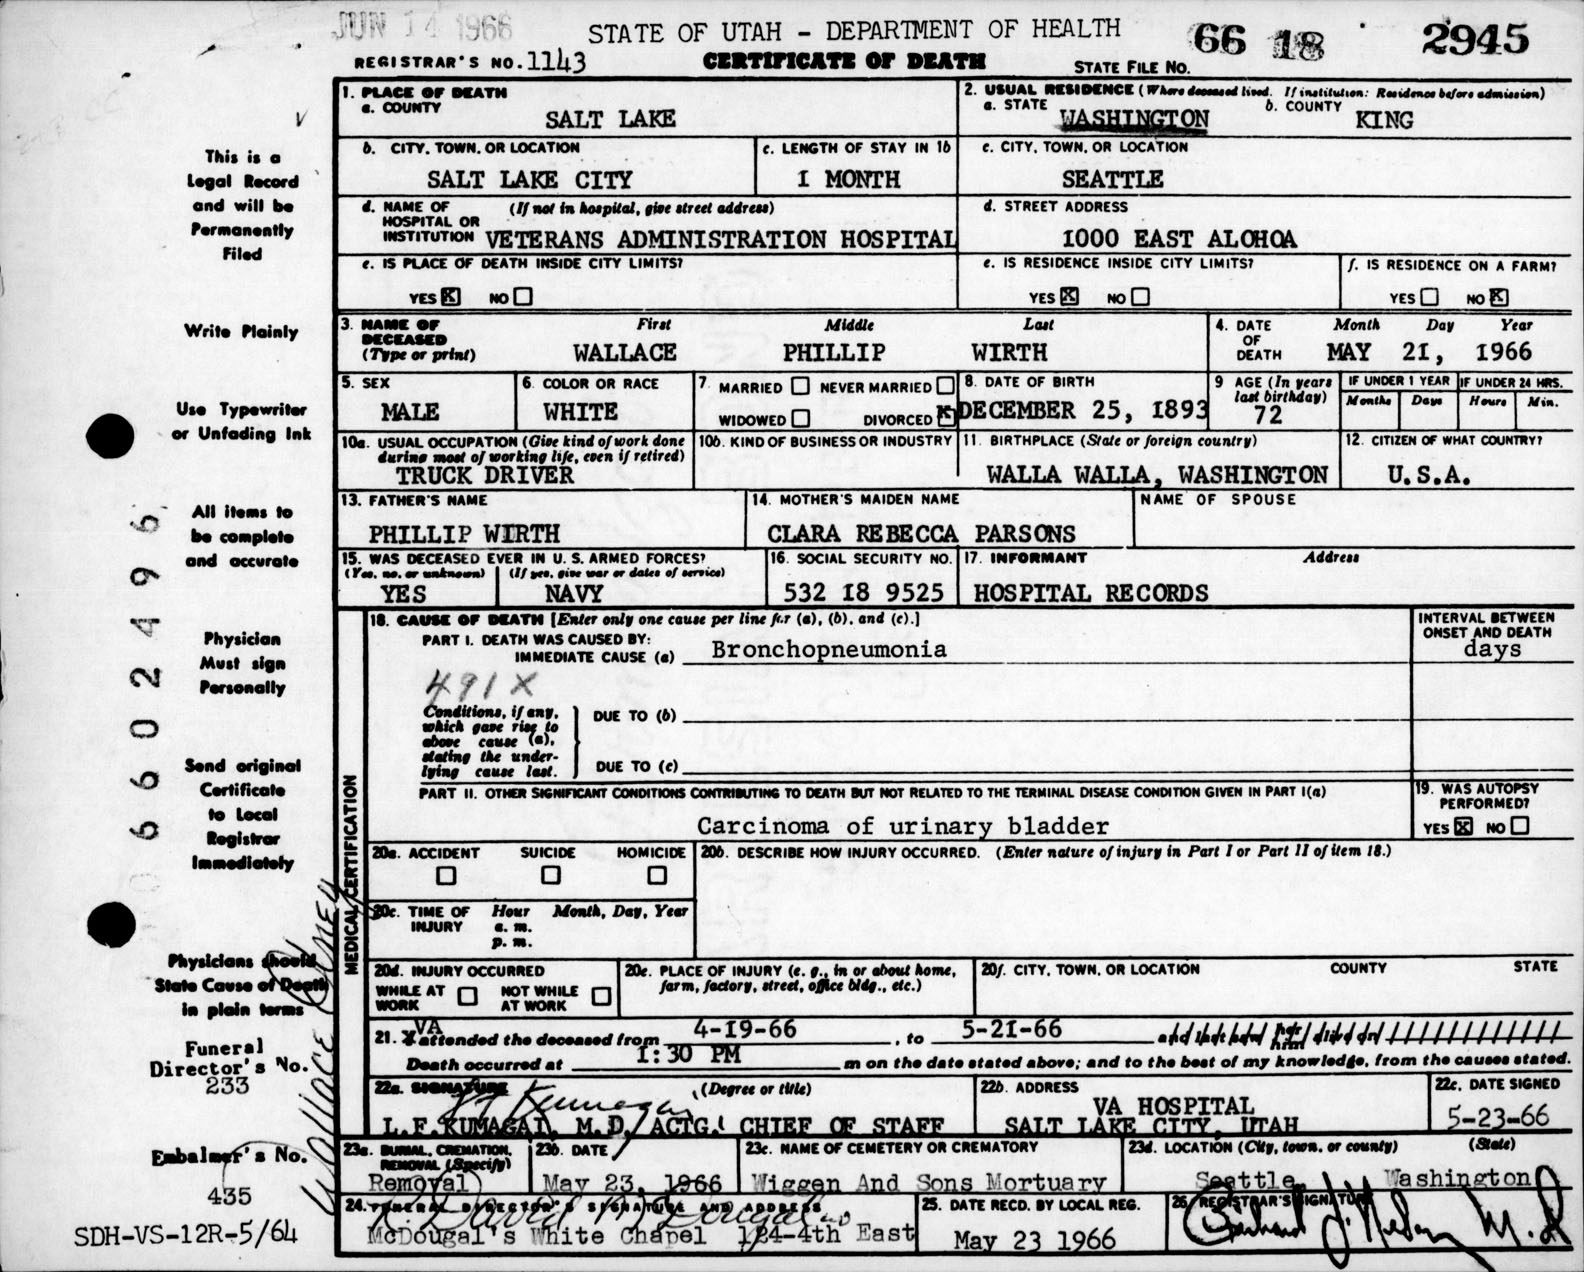 JUN 14 1966
STATE OF UTAH - DEPARTMENT OF HEALTH
66 18 2945
REGISTRAR'S NO. 1143
CERTIFICATE OF DEATH
STATE FILE NO.
This is a
Legal Record
and will be
Permanently
Filed
Write Plainly
Use Typewriter
or Unfading Ink
All items to
be complete
and accurate
Physician
Must sign
Personally
Send original
Certificate
to Local
Registrar
Immediately
Physicians should
State Cause of Death
in plain terms
Funeral
Director's No.
233
Embalmer's No.
435
SDH-VS-12R-5/64
6602496
WALLACE
1. PLACE OF DEATH
a. COUNTY
SALT LAKE
2. USUAL RESIDENCE (Where deceased lived. If institution: Residence before admission)
a. STATE
WASHINGTON
b. COUNTY
KING
b. CITY, TOWN, OR LOCATION
SALT LAKE CITY
c. LENGTH OF STAY IN 1b
1 MONTH
c. CITY, TOWN, OR LOCATION
SEATTLE
d. NAME OF HOSPITAL OR INSTITUTION
(If not in hospital, give street address)
VETERANS ADMINISTRATION HOSPITAL
d. STREET ADDRESS
1000 EAST ALOHOA
e. IS PLACE OF DEATH INSIDE CITY LIMITS?
YES X NO
e. IS RESIDENCE INSIDE CITY LIMITS?
YES X NO
f. IS RESIDENCE ON A FARM?
YES NO X
3. NAME OF DECEASED (Type or print)
First Middle Last
WALLACE PHILLIP WIRTH
4. DATE OF DEATH
Month Day Year
MAY 21, 1966
5. SEX
MALE
6. COLOR OR RACE
WHITE
7. MARRIED NEVER MARRIED
WIDOWED DIVORCED X
8. DATE OF BIRTH
DECEMBER 25, 1893
9 AGE (In years last birthday)
72
IF UNDER 1 YEAR
Months Days
IF UNDER 24 HRS.
Hours Min.
10a. USUAL OCCUPATION (Give kind of work done during most of working life, even if retired)
TRUCK DRIVER
10b. KIND OF BUSINESS OR INDUSTRY
11. BIRTHPLACE (State or foreign country)
WALLA WALLA, WASHINGTON
12. CITIZEN OF WHAT COUNTRY?
U.S.A.
13. FATHER'S NAME
PHILLIP WIRTH
14. MOTHER'S MAIDEN NAME
CLARA REBECCA PARSONS
NAME OF SPOUSE
15. WAS DECEASED EVER IN U. S. ARMED FORCES?
(Yes, no, or unknown) (If yes, give war or dates of service)
YES NAVY
16. SOCIAL SECURITY NO.
532 18 9525
17. INFORMANT Address
HOSPITAL RECORDS
MEDICAL CERTIFICATION
18. CAUSE OF DEATH [Enter only one cause per line for (a), (b), and (c).]
PART I. DEATH WAS CAUSED BY:
IMMEDIATE CAUSE (a) Bronchopneumonia
INTERVAL BETWEEN ONSET AND DEATH
days
491X
Conditions, if any, which gave rise to above cause (a), stating the underlying cause last.
DUE TO (b)
DUE TO (c)
PART II. OTHER SIGNIFICANT CONDITIONS CONTRIBUTING TO DEATH BUT NOT RELATED TO THE TERMINAL DISEASE CONDITION GIVEN IN PART I(a)
Carcinoma of urinary bladder
19. WAS AUTOPSY PERFORMED?
YES X NO
20a. ACCIDENT SUICIDE HOMICIDE
20b. DESCRIBE HOW INJURY OCCURRED. (Enter nature of injury in Part I or Part II of item 18.)
20c. TIME OF INJURY
Hour Month, Day, Year
a. m.
p. m.
20d. INJURY OCCURRED
WHILE AT WORK NOT WHILE AT WORK
20e. PLACE OF INJURY (e. g., in or about home, farm, factory, street, office bldg., etc.)
20f. CITY, TOWN, OR LOCATION COUNTY STATE
21. VA attended the deceased from 4-19-66, to 5-21-66 and last saw her him alive on
Death occurred at 1:30 PM m on the date stated above; and to the best of my knowledge, from the causes stated.
22a. SIGNATURE (Degree or title)
L.F. KUMAGAI, M.D. ACTG. CHIEF OF STAFF
22b. ADDRESS
VA HOSPITAL
SALT LAKE CITY, UTAH
22c. DATE SIGNED
5-23-66
23a. BURIAL, CREMATION, REMOVAL (Specify)
Removal
23b. DATE
May 23, 1966
23c. NAME OF CEMETERY OR CREMATORY
Wiggen And Sons Mortuary
23d. LOCATION (City, town, or county) (State)
Seattle Washington
24. FUNERAL DIRECTOR'S SIGNATURE AND ADDRESS
R. David McDougal
McDougal's White Chapel 124-4th East
25. DATE RECD. BY LOCAL REG.
May 23 1966
26. REGISTRAR'S SIGNATURE